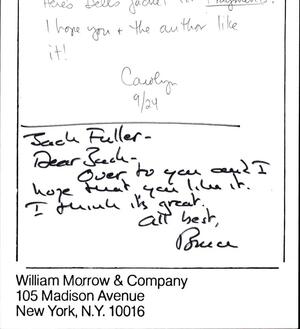 Here's Dell's jacket for Fragments.
I hope you + the author like
it!
Carolyn
9/24
Jack Fuller-
Dear Jack-
Over to you and I
hope that you like it.
I think it's great.
All best,
Bruce
William Morrow & Company
105 Madison Avenue
New York, N.Y. 10016